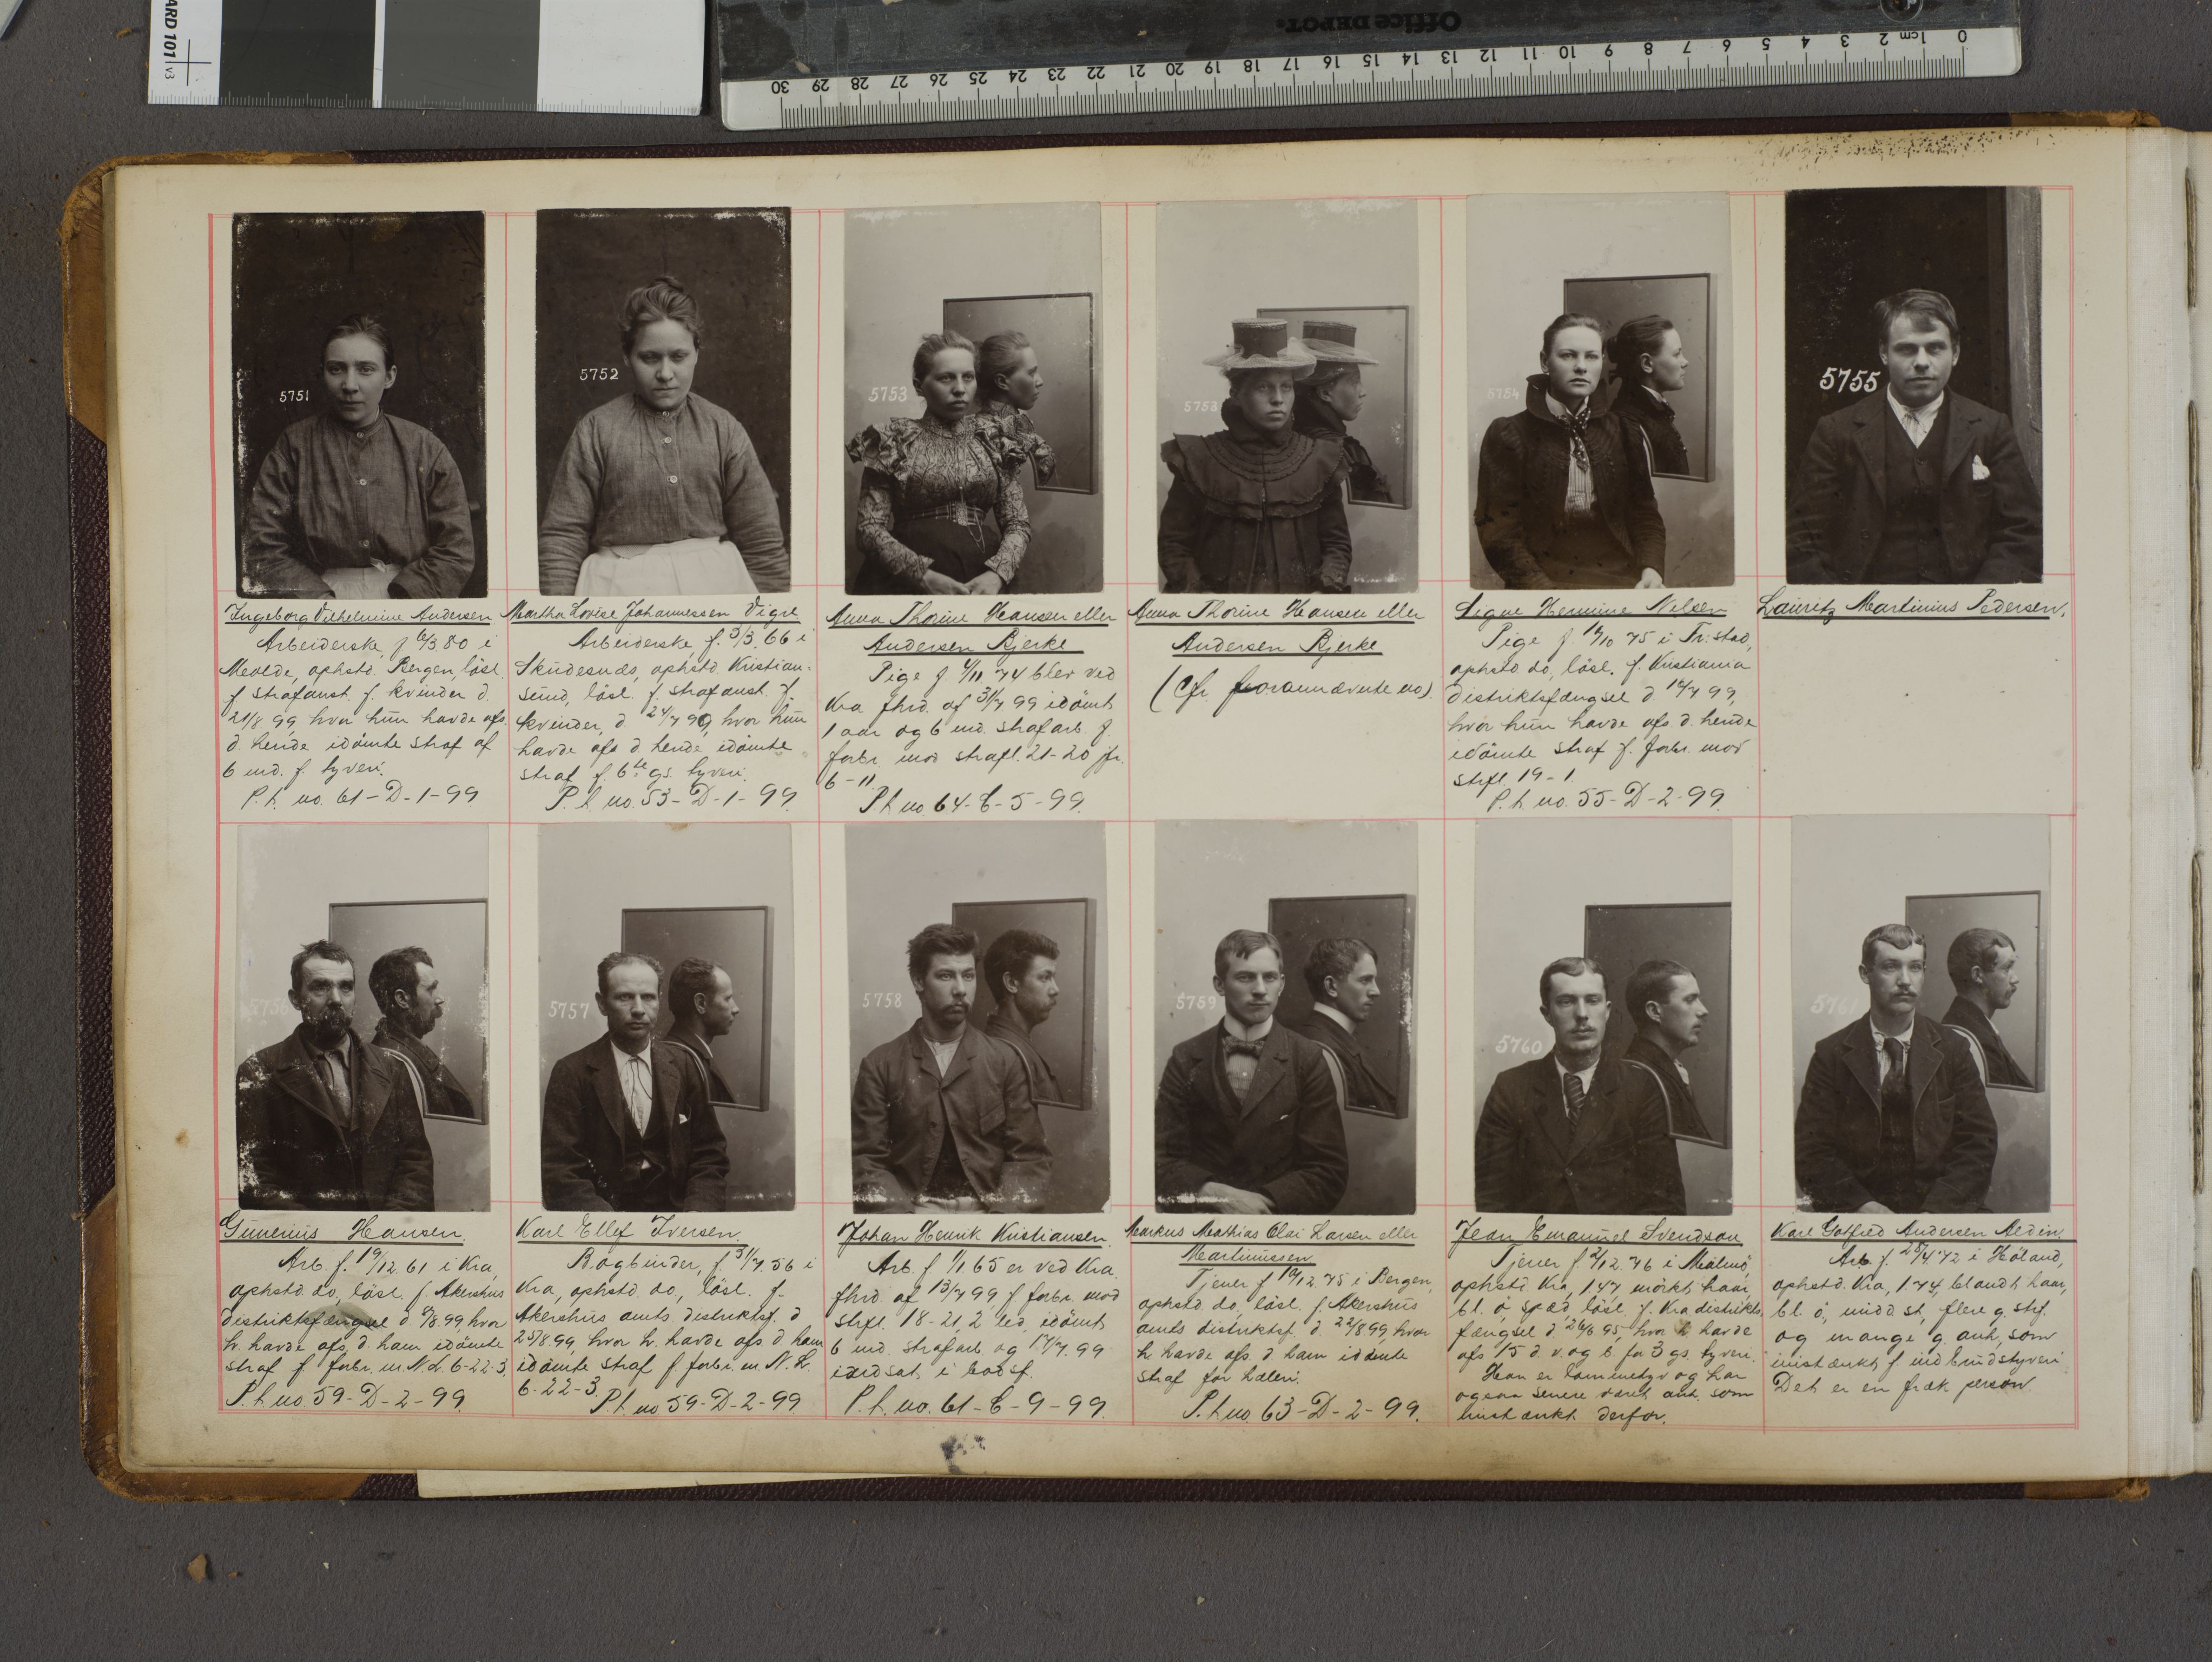 ARD 101 v3
Office DEPOT.
0 1cm 2 3 4 5 6 7 8 9 10 11 12 13 14 15 16 17 18 19 20 21 22 23 24 25 26 27 28 29 30
5751
Ingeborg Vilhelmine Andersen
Arbeiderske, f 6/3 80 i
Molde, ophstd. Bergen, løsl.
f strafanst. f. kvinder d
21/8 99, hvor hun havde afs.
d. hende idömte straf af
6 md. f. tyveri.
P.h. no. 61-D-1-99
5752
Martha Lovise Johannessen Vigre
Arbeiderske, f. 3/3. 66 i
Skudesnæs, ophstd. Kristian-
sund, lösl. f. strafanst. f.
kvinder, d 24/7 99, hvor hun
havde afs d. hende idömte
straf f. 6te gs. tyveri.
P.h. no. 53-D-1-99.
5753
Anna Thorine Hansen eller
Andersen Bjerke
Pige f 4/11 74 blev ved
Kra fhrd. af 31/7 99 idömt
1 aar og 6 md. strafarb. f.
forbr. mod strafl. 21-20 jfr.
6-11.
P h no 64-C-5-99.
5753
Anna Thorine Hansen eller
Andersen Bjerke
(Cfr. forannævnte no).
5754
Signe Hermine Nelsen
Pige f 14/10 75 i Fr:stad,
ophstd do, lösl. f. Kristiania
Distriktsfængsel d 14/7 99,
hvor hun havde afs d. hende
idömte straf f. forbr. mod
strfl. 19-1.
P.h. no. 55-D-2-99.
5755
Lauritz Martinius Pedersen.
5756
Gunerius Hansen.
Arb. f. 19/12 61 i Kra,
ophstd do, lösl. f. Akershus
distriktsfængsel d /8.99, hvor
h. havde afs, d. ham idömte
straf f forbr. m. N.L. 6-22-3.
P.h. no. 59-D-2-99.
5757
Karl Ellef Iversen.
Bogbinder, f. 31/7. 56 i
Kra, ophstd. do, lösl. f.
Akershus amts distriktsf. d
25/8.99, hvor h. havde afs. d ham
idömte straf f forbr. m. N.L.
6-22-3.
P.h. no 59-D-2-99
5758
Johan Henrik Kristiansen.
Arb. f 1/1 65 er ved Kra.
fhrd. af 13/7 99 f forbr. mod
strfl. 18-21, 2 led, idömt
6 md. strafarb og 17/7.99
indsat i bodsf.
P.h. no. 61-C-9-99.
5759
Markus Mathias Olai Larsen eller
Martinussen
Tjener f 10/12 75 i Bergen,
ophstd. do, lösl. f. Akershus
amts distriktsf. d. 22/8 99, hvor
h. havde afs. d ham idömte
straf for hæleri.
P.h. no 63-D-2-99.
5760
Jean Emanuel Svendson
Tjener f 2/12. 76 i Malmö,
ophstd. Kra, 147, mörkt haar,
bl. ö, spæd, lösl. f. Kra distrikts
fængsel d. 26/6 95, hvor h havde
afs 15 d. v. og b. for 3 gs. tyveri.
Han er lommetyv og har
ogsaa senere været anh. som
mistænkt derfor.
5761
Karl Gotfred Andersen Aldin.
Arb. f. 28/4. 72 i Höland,
ophstd. Kra, 1.74, blandt haar,
bl. ö, midd st, flere g. strf.
og mange g anh, som
mistænkt f indbrudstyveri
Det er en fræk person.